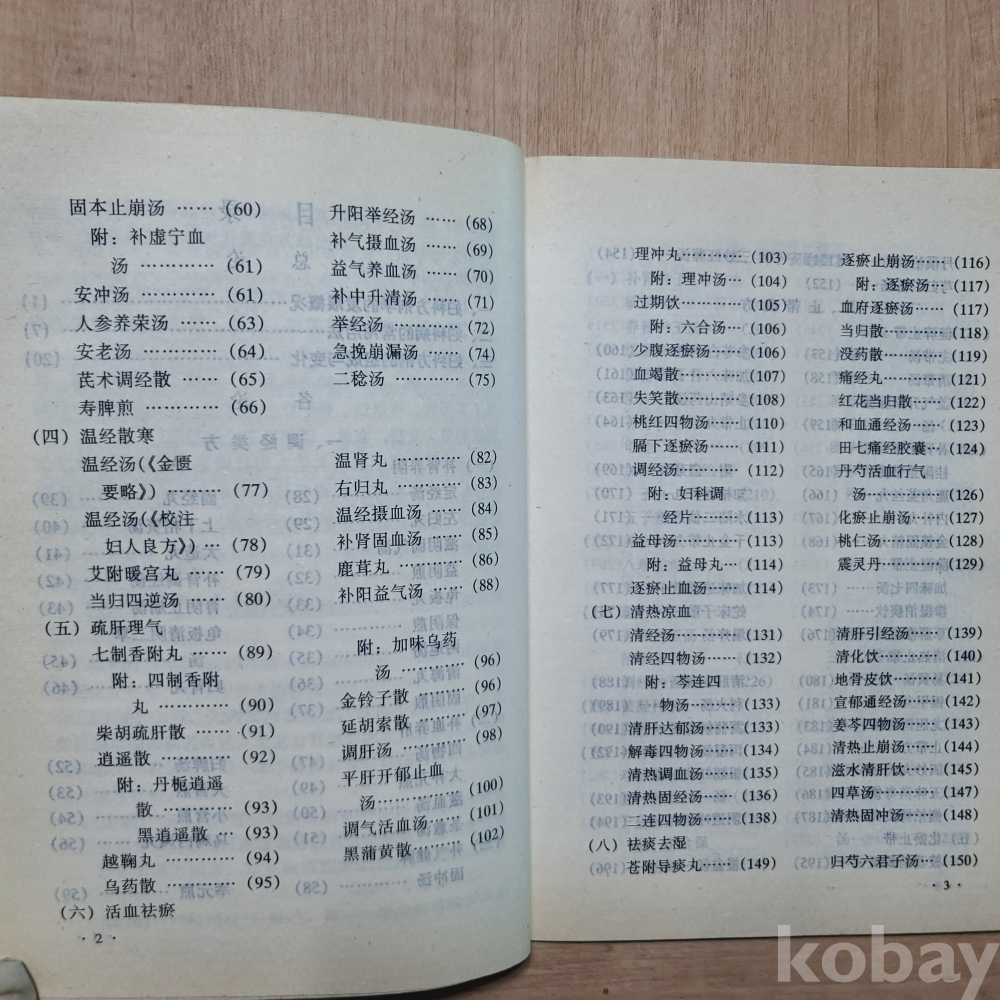 固本止崩汤 …… (60)
附：补虚宁血
汤 ………… (61)
安冲汤 ………… (61)
人参养荣汤 …… (63)
安老汤 ………… (64)
芪术调经散 …… (65)
寿脾煎 ………… (66)
升阳举经汤 …… (68)
补气摄血汤 …… (69)
益气养血汤 …… (70)
补中升清汤 …… (71)
举经汤 ………… (72)
急挽崩漏汤 …… (74)
二稔汤 ………… (75)
（四）温经散寒
温经汤（《金匮
要略》）…… (77)
温经汤（《校注
妇人良方》）… (78)
艾附暖宫丸 …… (79)
当归四逆汤 …… (80)
温肾丸 ………… (82)
右归丸 ………… (83)
温经摄血汤 …… (84)
补肾固血汤 …… (85)
鹿茸丸 ………… (86)
补阳益气汤 …… (88)
（五）疏肝理气
七制香附丸 …… (89)
附：四制香附
丸 ………… (90)
柴胡疏肝散 …… (91)
逍遥散 ………… (92)
附：丹栀逍遥
散 ………… (93)
黑逍遥散 … (93)
越鞠丸 ………… (94)
乌药散 ………… (95)
附：加味乌药
汤 ………… (96)
金铃子散 ……… (96)
延胡索散 ……… (97)
调肝汤 ………… (98)
平肝开郁止血
汤 ………… (100)
调气活血汤 …… (101)
黑蒲黄散 ……… (102)
（六）活血祛瘀
· 2 ·
理冲丸………… (103)
附：理冲汤… (104)
过期饮………… (105)
附：六合汤… (106)
少腹逐瘀汤…… (106)
血竭散………… (107)
失笑散………… (108)
桃红四物汤…… (110)
膈下逐瘀汤…… (111)
调经汤………… (112)
附：妇科调
经片……… (113)
益母汤………… (113)
附：益母丸… (114)
逐瘀止血汤…… (114)
逐瘀止崩汤…… (116)
附：逐瘀汤… (117)
血府逐瘀汤…… (117)
当归散………… (118)
没药散………… (119)
痛经丸………… (121)
红花当归散…… (122)
和血通经汤…… (123)
田七痛经胶囊… (124)
丹芍活血行气
汤………… (126)
化瘀止崩汤…… (127)
桃仁汤………… (128)
震灵丹………… (129)
（七）清热凉血
清经汤………… (131)
清经四物汤…… (132)
附：芩连四
物汤……… (133)
清肝达郁汤…… (133)
解毒四物汤…… (134)
清热调血汤…… (135)
清热固经汤…… (136)
二连四物汤…… (138)
清肝引经汤…… (139)
清化饮………… (140)
地骨皮饮……… (141)
宣郁通经汤…… (142)
姜芩四物汤…… (143)
清热止崩汤…… (144)
滋水清肝饮…… (145)
四草汤………… (147)
清热固冲汤…… (148)
（八）祛痰去湿
苍附导痰丸…… (149)
归芍六君子汤… (150)
· 3 ·
kobay